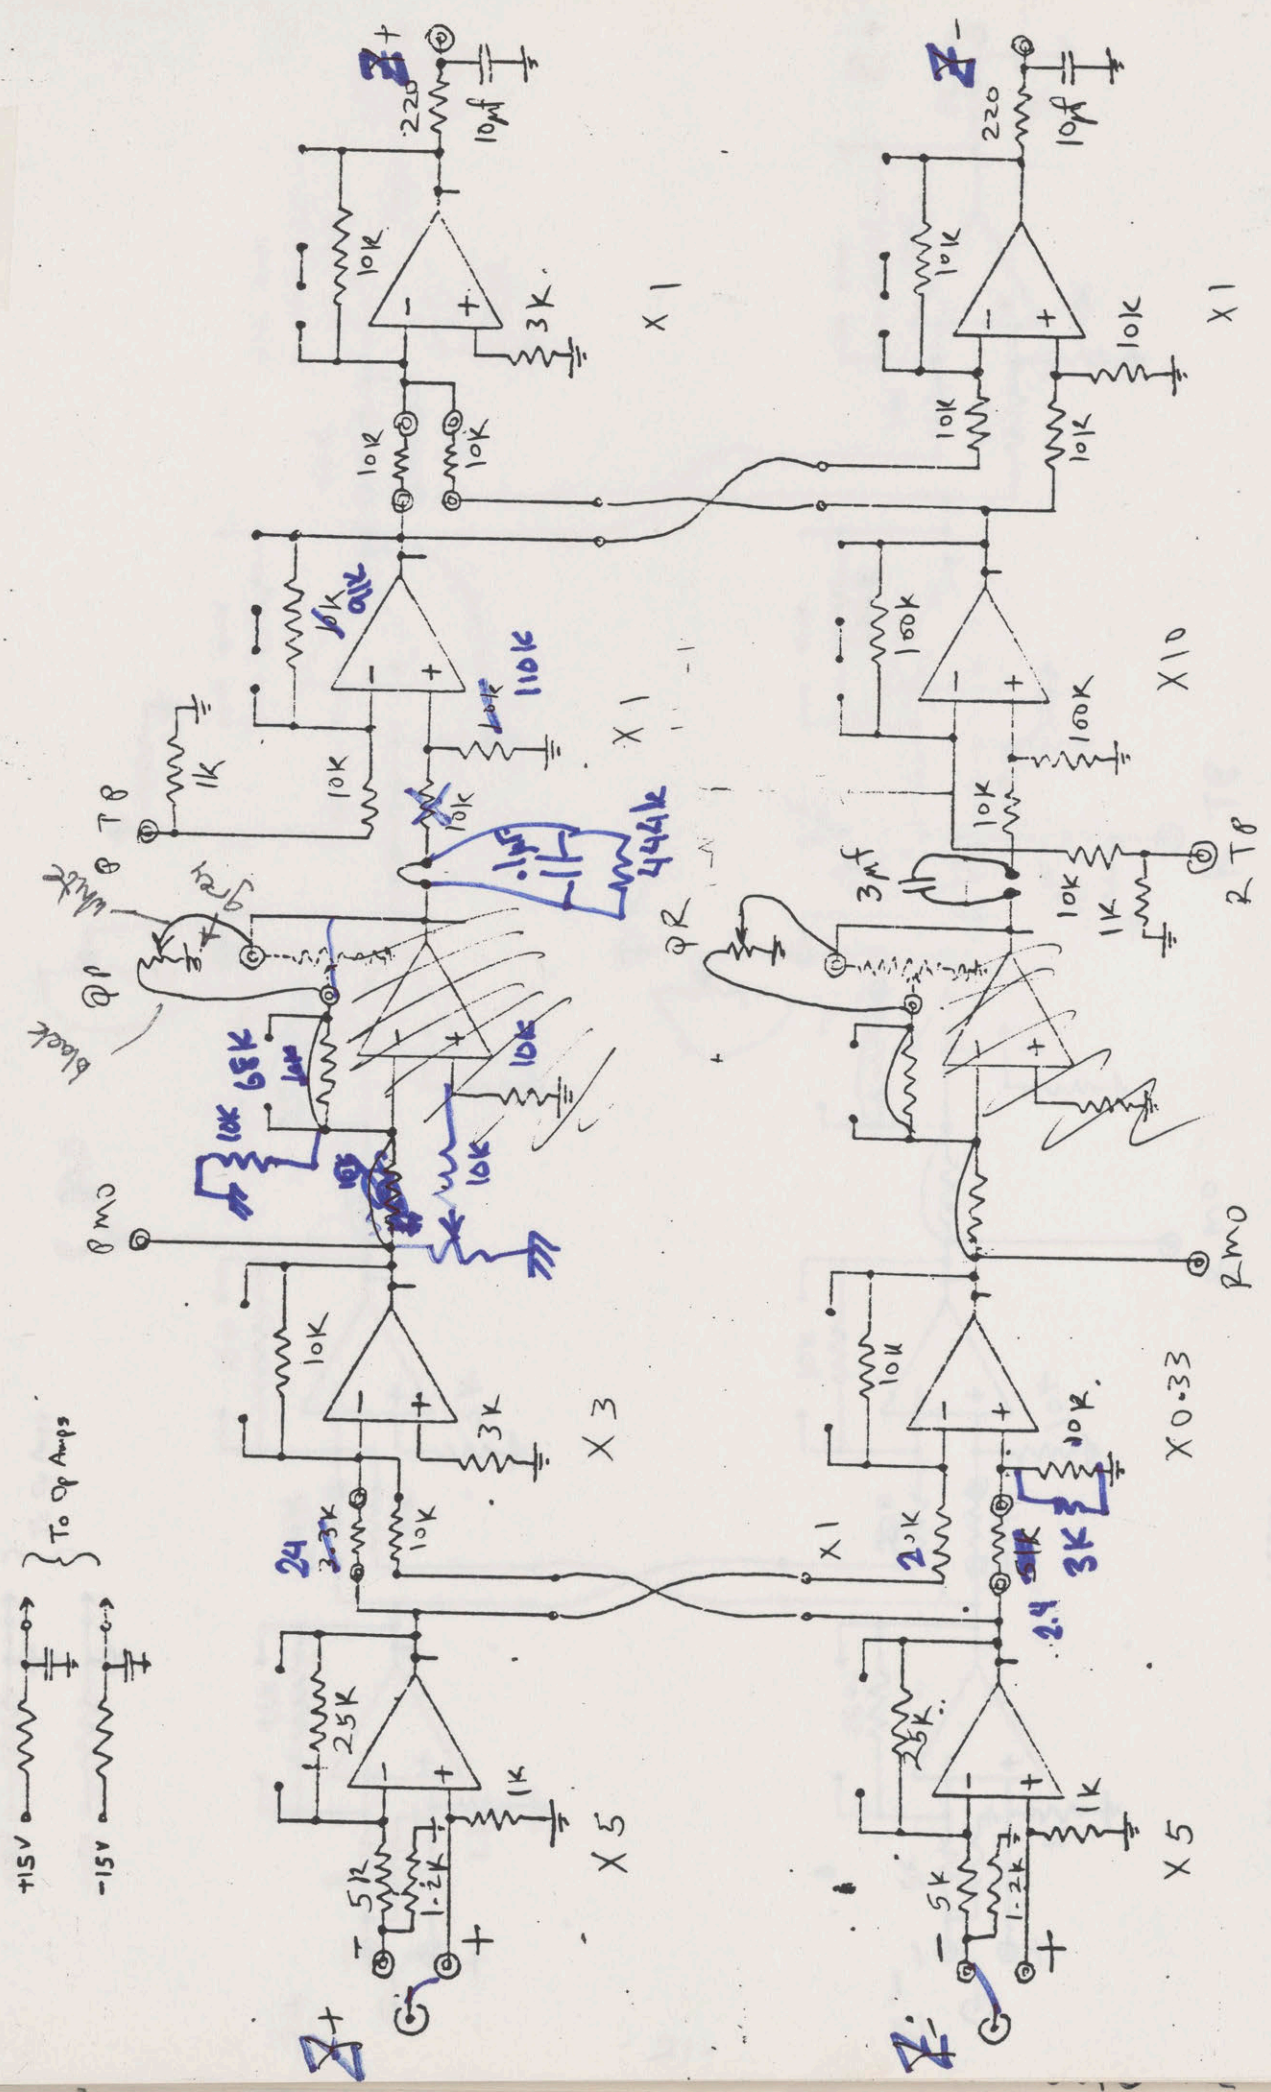 +15V
-15V
} To Op Amps
Z+
-
+
5K
1.2K
1K
25K
-
+
X5
24
3.3K
10K
10K
-
+
3K
X3
PMO
10K
10K
68K
10K
10K
-
+
10K
black
white
grey
@P
P TP
1K
10K
10K
.1µf
444K
10K
91K
-
+
110K
X1
10K
10K
10K
-
+
3K.
X1
220
10µf
Z+
Z-
-
+
5K
1.2K
1K
25K.
-
+
X5
X1
20K
2.4
51K
3K
10K
-
+
10K.
X0.33
RMO
-
+
@R
3µf
10K
10K
1K
R TP
100K
-
+
100K
X10
10K
10K
10K
-
+
10K
X1
220
10µf
Z-